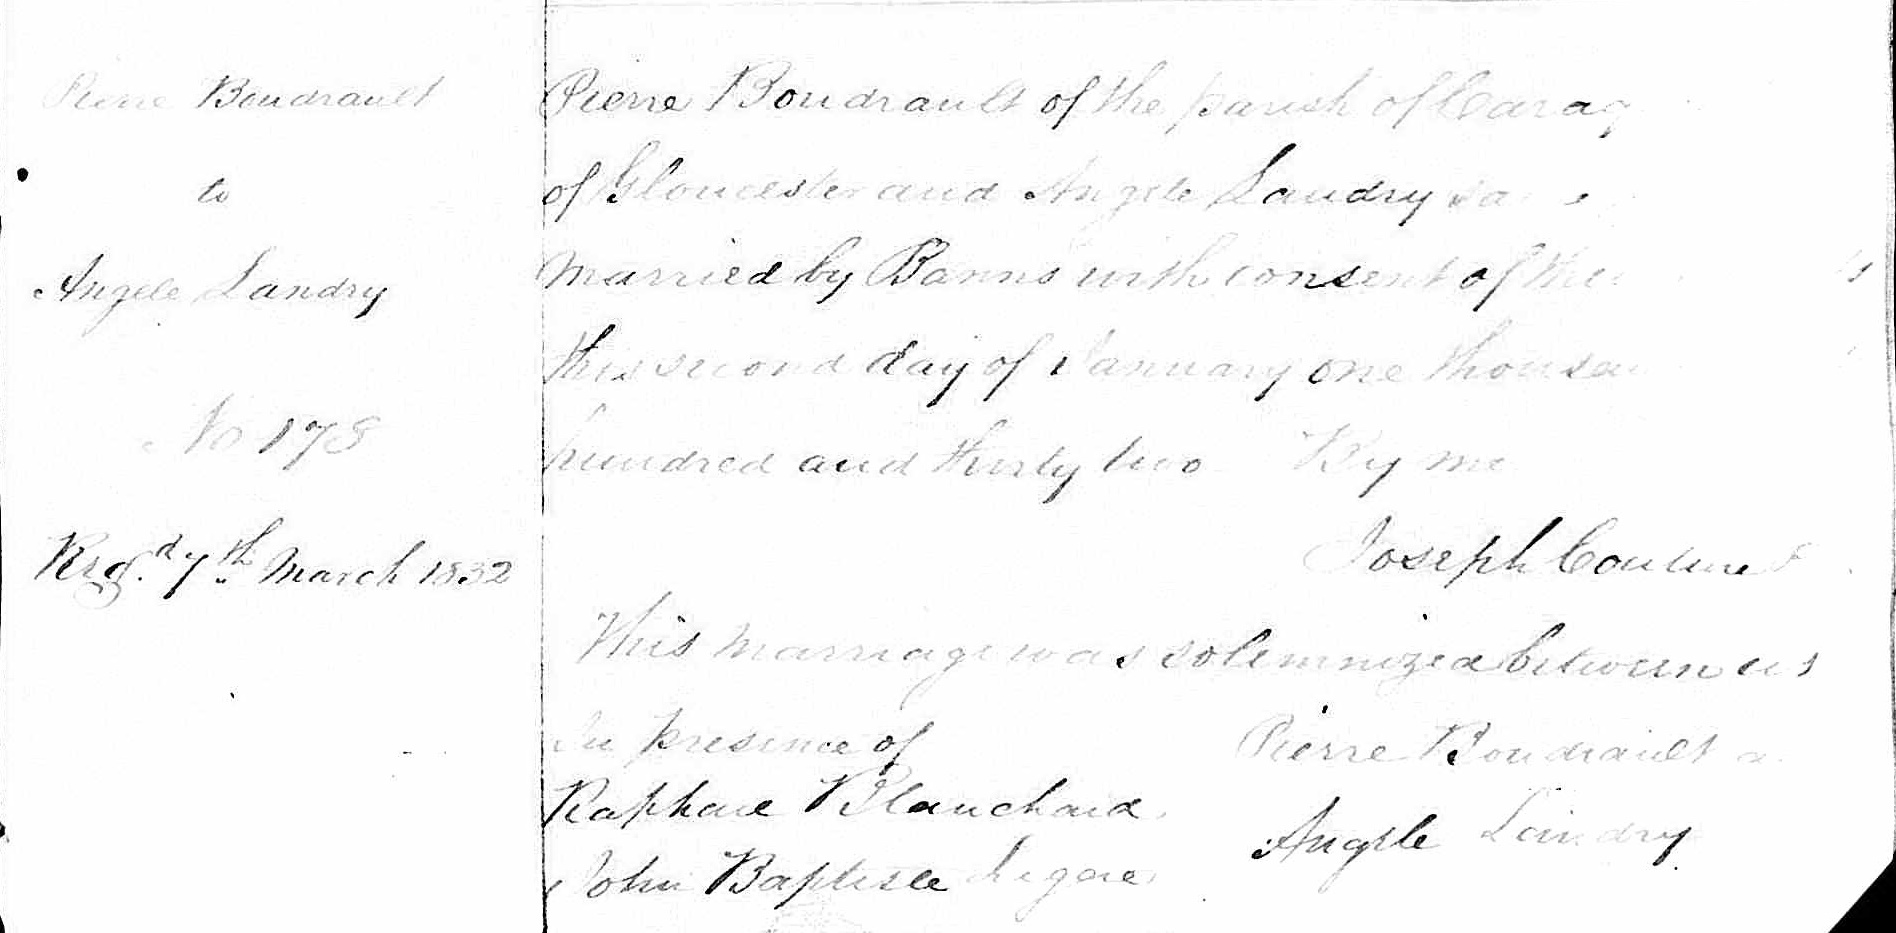 Pierre Boudrault
to
Angele Landry
No 178
Regd. 7th March 1832
Pierre Boudrault of the parish of Caraq
of Gloucester and Angele Landry
married by Banns with consent of
this second day of January one
hundred and thirty two By me
Joseph Couture
This marriage was solemnized between us
In presence of
Pierre Boudrault
Raphael Blanchard
Angele Landry
John Baptiste